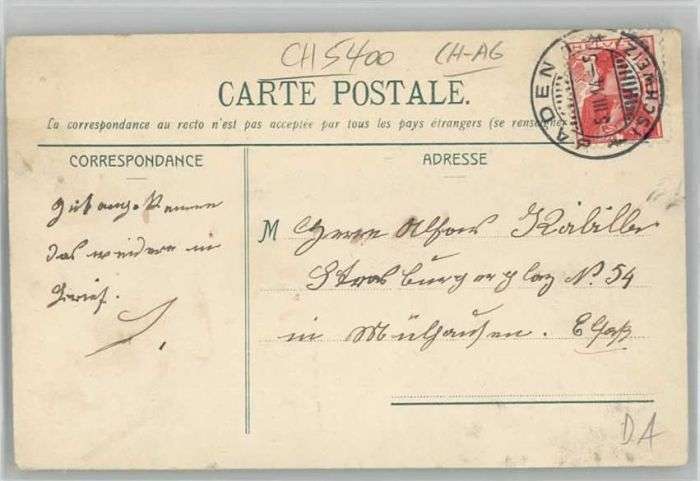 CH5400 CH-AG
CARTE POSTALE.
La correspondance au recto n'est pas acceptée par tous les pays étrangers (se renseigner
CORRESPONDANCE
Gut angekommen
das weitere im
Brief.
BADEN
(SCHWEIZ)
ADRESSE
M Herrn Alfons
Strasburgerplaz No. 54
in Mülhausen. Elsaß
DA